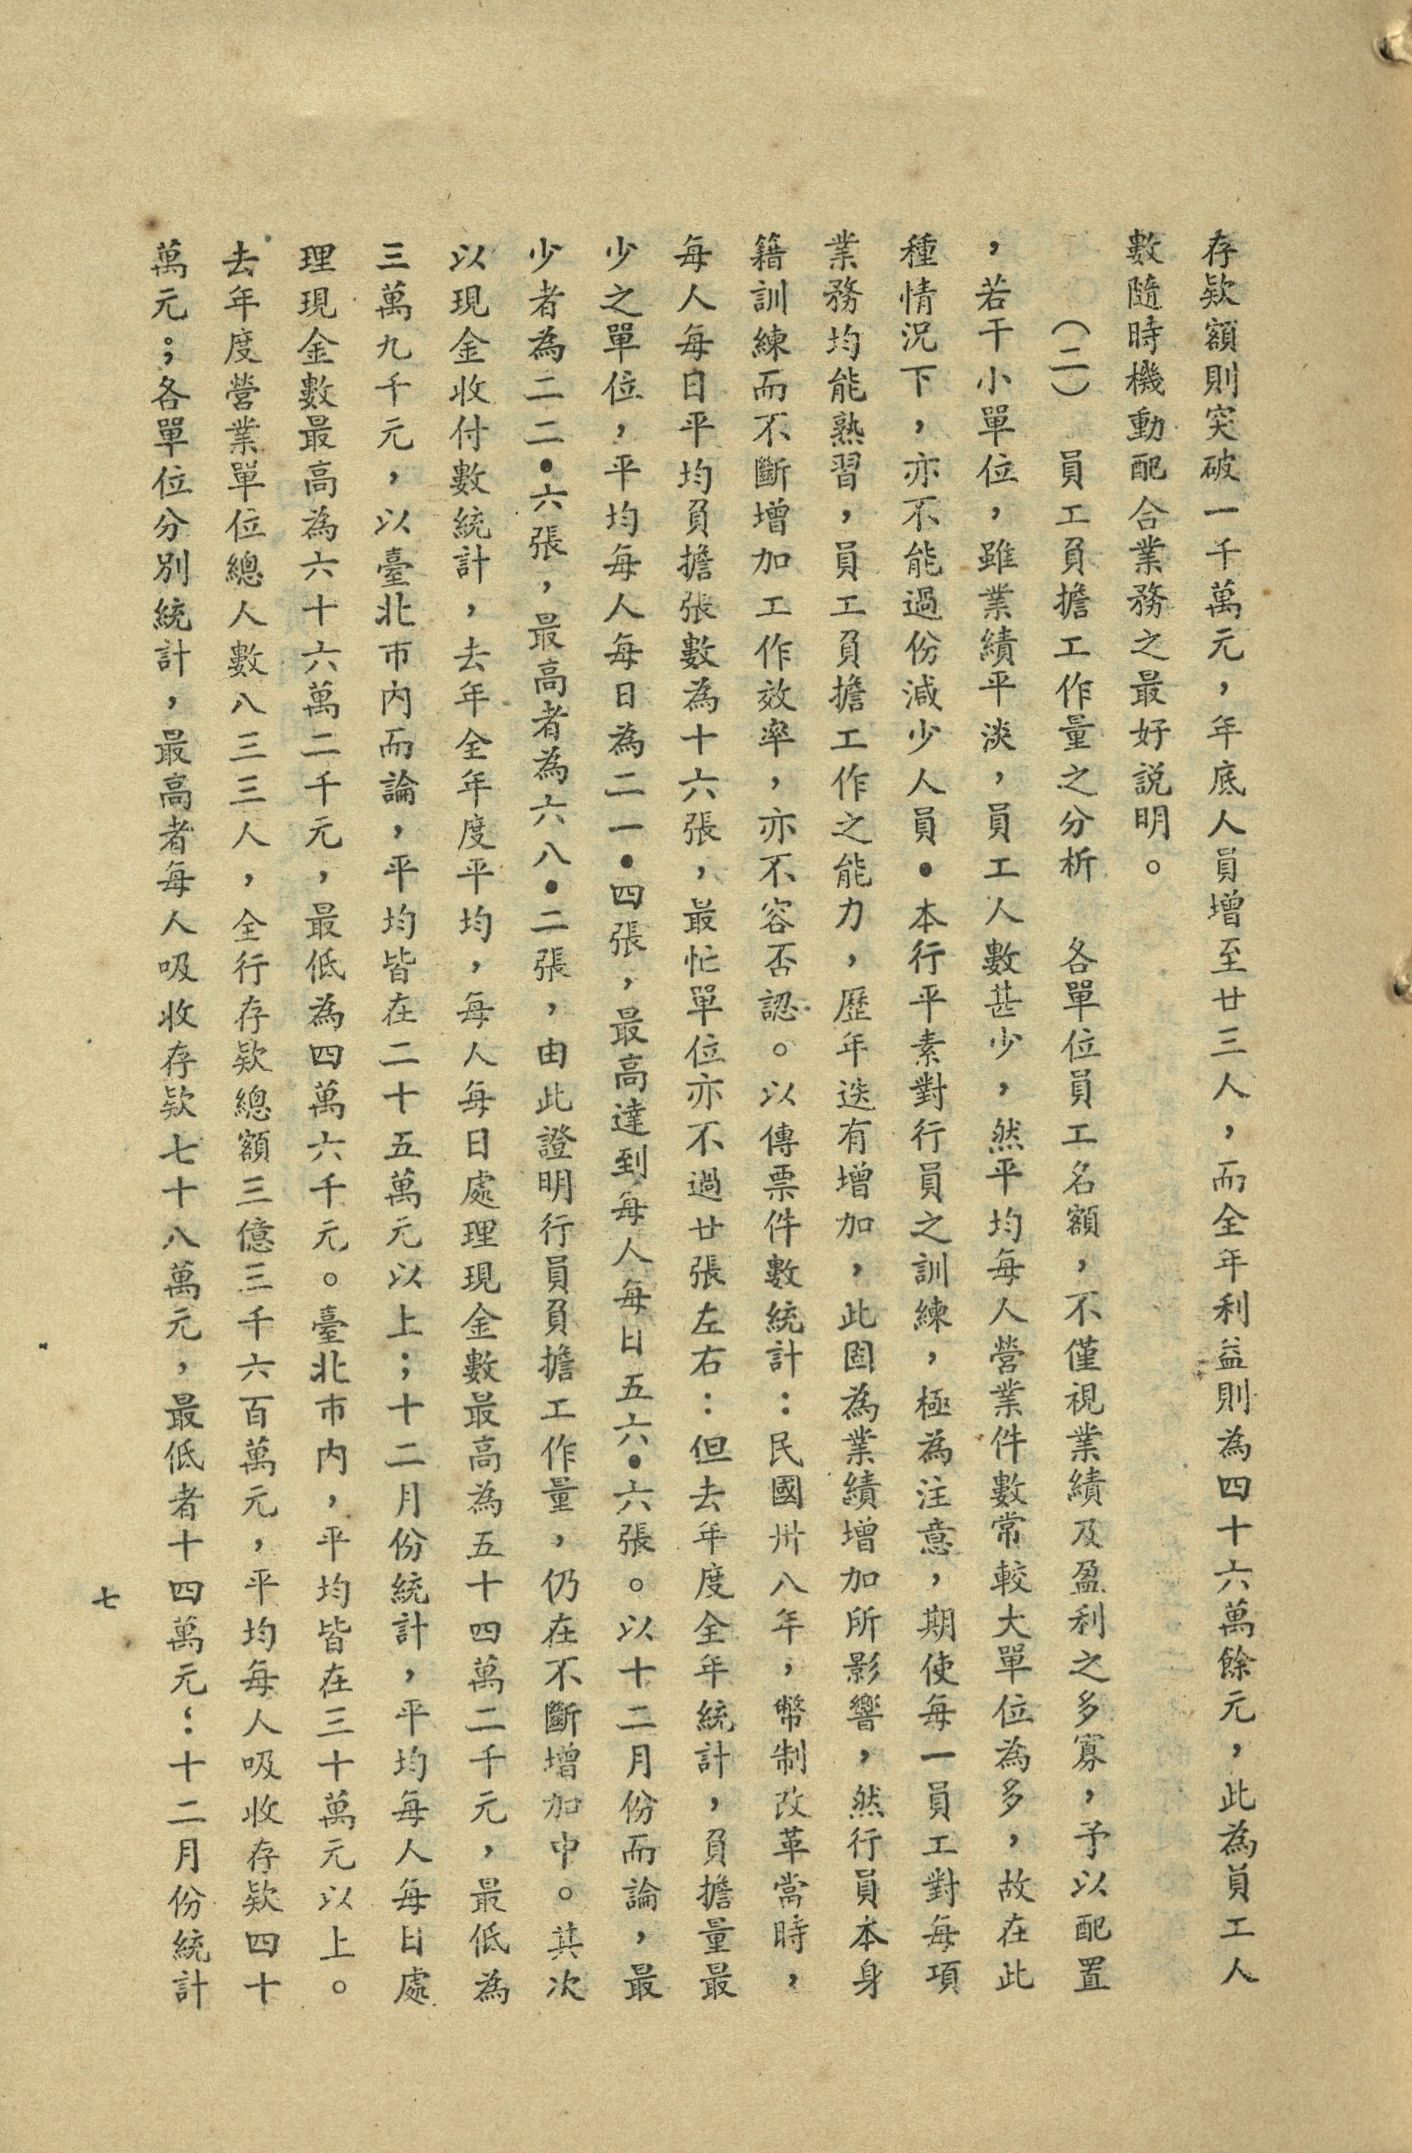 存欵額則突破一千萬元，年底人員增至廿三人，而全年利益則為四十六萬餘元，此為員工人
數隨時機動配合業務之最好説明。
（二）　員工負擔工作量之分析　各單位員工名額，不僅視業績及盈利之多寡，予以配置
，若干小單位，雖業績平淡，員工人數甚少，然平均每人營業件數常較大單位為多，故在此
種情况下，亦不能過份減少人員•本行平素對行員之訓練，極為注意，期使每一員工對每項
業務均能熟習，員工負擔工作之能力，歷年迭有增加，此固為業績增加所影響，然行員本身
籍訓練而不斷增加工作效率，亦不容否認。以傳票件數統計：民國卅八年，幣制改革當時，
每人每日平均負擔張數為十六張，最忙單位亦不過廿張左右：但去年度全年統計，負擔量最
少之單位，平均每人每日為二一•四張，最高達到每人每日五六•六張。以十二月份而論，最
少者為二二•六張，最高者為六八•二張，由此證明行員負擔工作量，仍在不斷增加中。其次
以現金收付數統計，去年全年度平均，每人每日處理現金數最高為五十四萬二千元，最低為
三萬九千元，以臺北市内而論，平均皆在二十五萬元以上；十二月份統計，平均每人每日處
理現金數最高為六十六萬二千元，最低為四萬六千元。臺北市内，平均皆在三十萬元以上。
去年度營業單位總人數八三三人，全行存欵總額三億三千六百萬元，平均每人吸收存欵四十
萬元；各單位分別統計，最高者每人吸收存欵七十八萬元，最低者十四萬元：十二月份統計
七